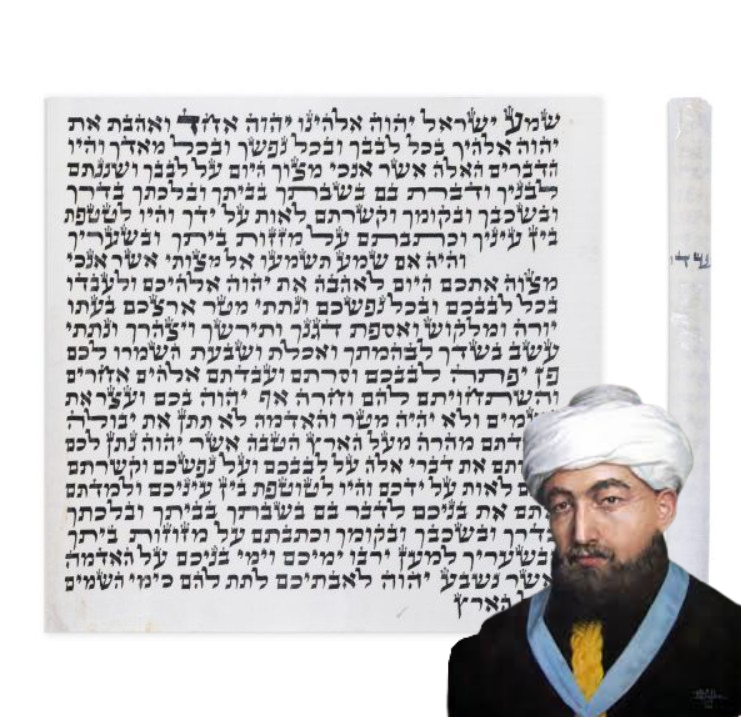 שמע ישראל יהוה אלהינו יהוה אחד ואהבת את
יהוה אלהיך בכל לבבך ובכל נפשך ובכל מאדך והיו
הדברים האלה אשר אנכי מצוך היום על לבבך ושננתם
לבניך ודברת בם בשבתך בביתך ובלכתך בדרך
ובשכבך ובקומך וקשרתם לאות על ידך והיו לטטפת
בין עיניך וכתבתם על מזזות ביתך ובשעריך
והיה אם שמע תשמעו אל מצותי אשר אנכי
מצוה אתכם היום לאהבה את יהוה אלהיכם ולעבדו
בכל לבבכם ובכל נפשכם ונתתי מטר ארצכם בעתו
יורה ומלקוש ואספת דגנך ותירשך ויצהרך ונתתי
עשב בשדך לבהמתך ואכלת ושבעת השמרו לכם
פן יפתה לבבכם וסרתם ועבדתם אלהים אחרים
והשתחויתם להם וחרה אף יהוה בכם ועצר את
ולא יהיה מטר והאדמה לא תתן את יבולה
מהרה מעל הארץ הטבה אשר יהוה נתן לכם
את דברי אלה על לבבכם ועל נפשכם וקשרתם
לאות על ידכם והיו לטוטפת בין עיניכם ולמדתם
אתם את בניכם לדבר בם בשבתך בביתך ובלכתך
בדרך ובשכבך ובקומך וכתבתם על מזוזות ביתך
ובשעריך למען ירבו ימיכם וימי בניכם על האדמה
אשר נשבע יהוה לאבתיכם לתת להם כימי השמים
הארץ
שדי